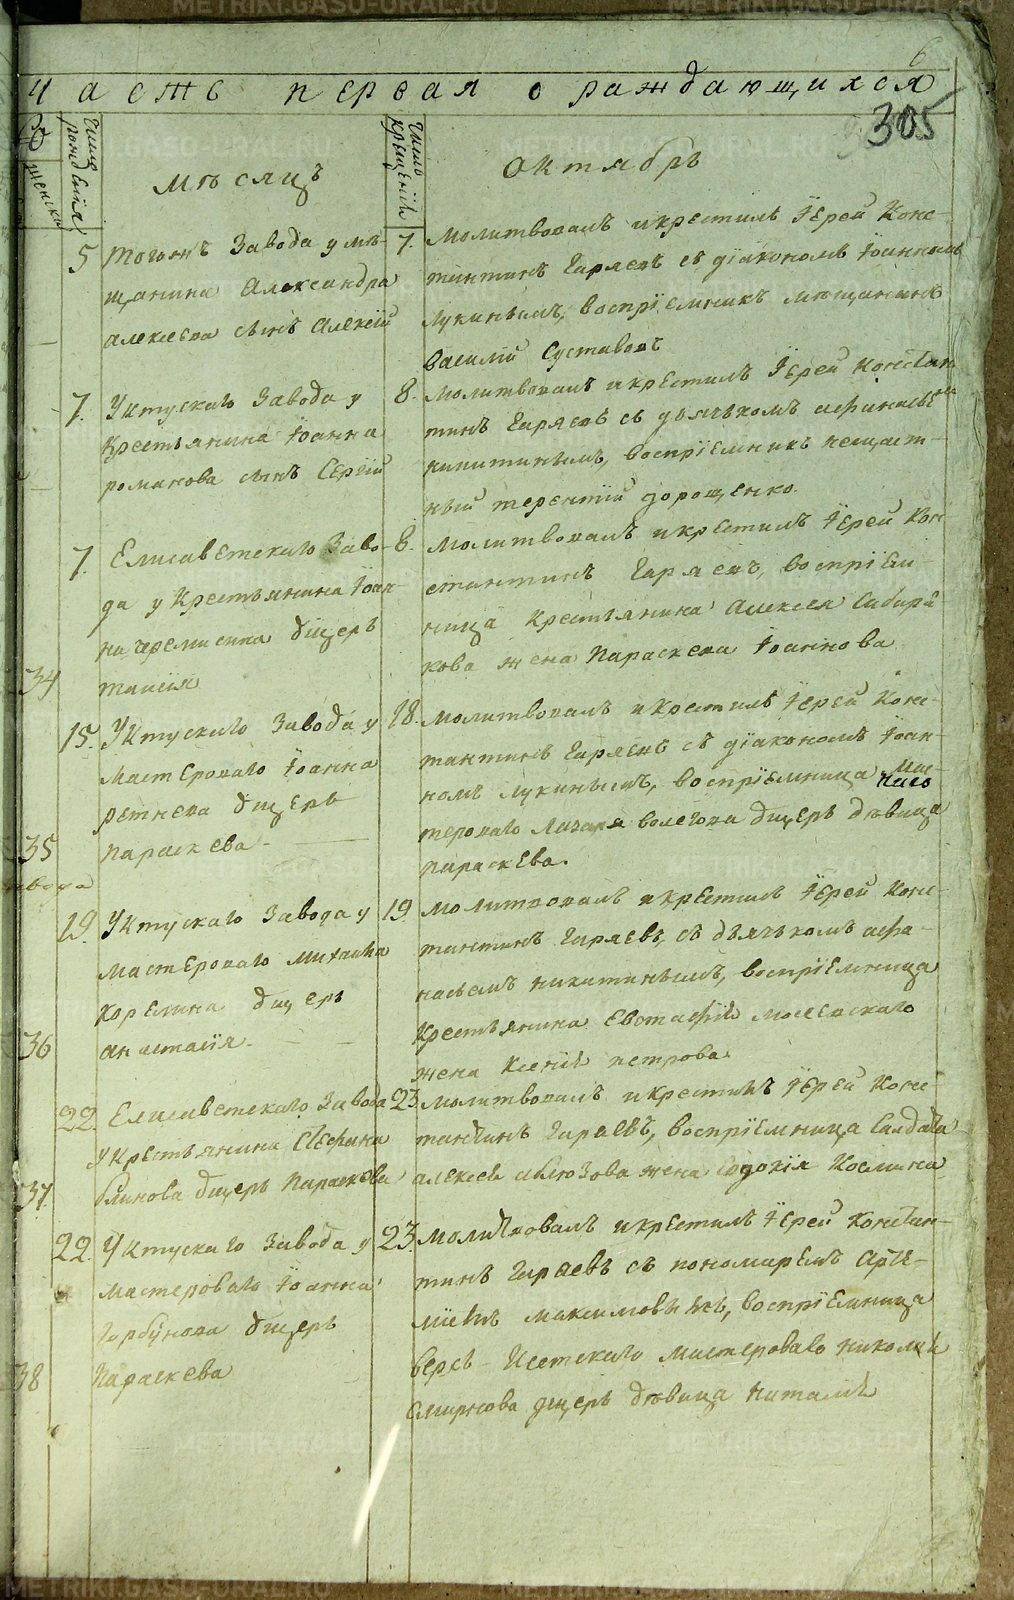 METRIKI.GASO-URAL.RU METRIKI.GASO-URAL.RU
6
Часть первая о раждающихся
305
женска
Число рождения
мѣсяцъ
Число крещенiй
октябрь
5 тогожъ Завода у мѣ-
щанина Александра
алексеева сынъ Алексiй
7. Молитвовалъ и крестилъ Iерей Конс-
тантинъ Гаряевъ съ дiакономъ Iоанномъ
Лукинымъ, воспрiемникъ мѣщанинъ
василий Суставовъ
7. Уктускаго Завода у
Крестьянина Iоанна
романова сынъ Сергiй
8. молитвовалъ и крестилъ Iерей Констан
тинъ Гаряевъ съ дьячькомъ афанасьемъ
никитинымъ, воспрiемникъ нещаст-
ный терентiй дорощенко.
7. Елисаветскаго Заво-
да у Крестьянина Iоан-
на черемисина дщерь
34 таисiя
8. молитвовалъ и крестилъ Iерей Кон
стантинъ Гаряевъ, воспрiем-
ница Крестьянина Алексея Сибиря
кова жена Параскева Iоаннова
15. Уктускаго Завода у
мастероваго Iоанна
ретнева дщерь
35 параскева
18. молитвовалъ и крестилъ Iерей Конс-
тантинъ Гаряевъ съ дiакономъ Iоан-
номъ лукинымъ, воспрiемница мас-
тероваго Лазаря волегова дщерь дѣвица
параскева.
19. Уктускаго Завода у
мастероваго михаила
Корелина дщерь
36 анастасiя
19 молитвовалъ и крестилъ Iерей Конс-
тантинъ Гаряевъ, съ дьячькомъ афа-
насьемъ никитинымъ, воспрiемница
Крестьянина Евстафiя
жена Ксенiя петрова
22. Елисаветскаго Завода
у Крестьянина Стефана
37. блинова дщерь Параскева
23 молитвовалъ и крестилъ Iерей Конс-
тантинъ Гараевъ, воспрiемница Салдата
алексея жена Евдокiя Космина
22. Уктускаго Завода у
мастероваго Iоанна
Горбунова дщерь
38 Параскева
23. молитвовалъ и крестилъ Iерей Констан-
тинъ Гараевъ съ пономаремъ Арте-
мiемъ максимовымъ, воспрiемница
верхъ-Исетскаго мастероваго николая
Смирнова дщерь дѣвица наталiя
METRIKI.GASO-URAL.RU METRIKI.GASO-URAL.RU
METRIKI.GASO-URAL.RU